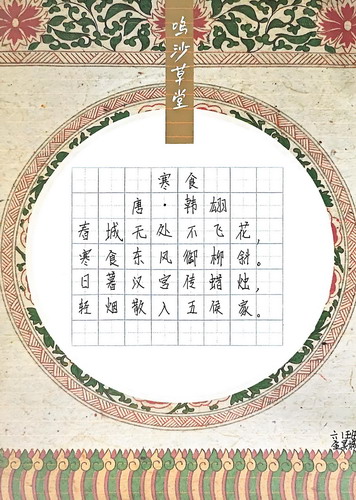 鸣沙草堂
寒食
唐·韩翃
春城无处不飞花，
寒食东风御柳斜。
日暮汉宫传蜡烛，
轻烟散入五侯家。